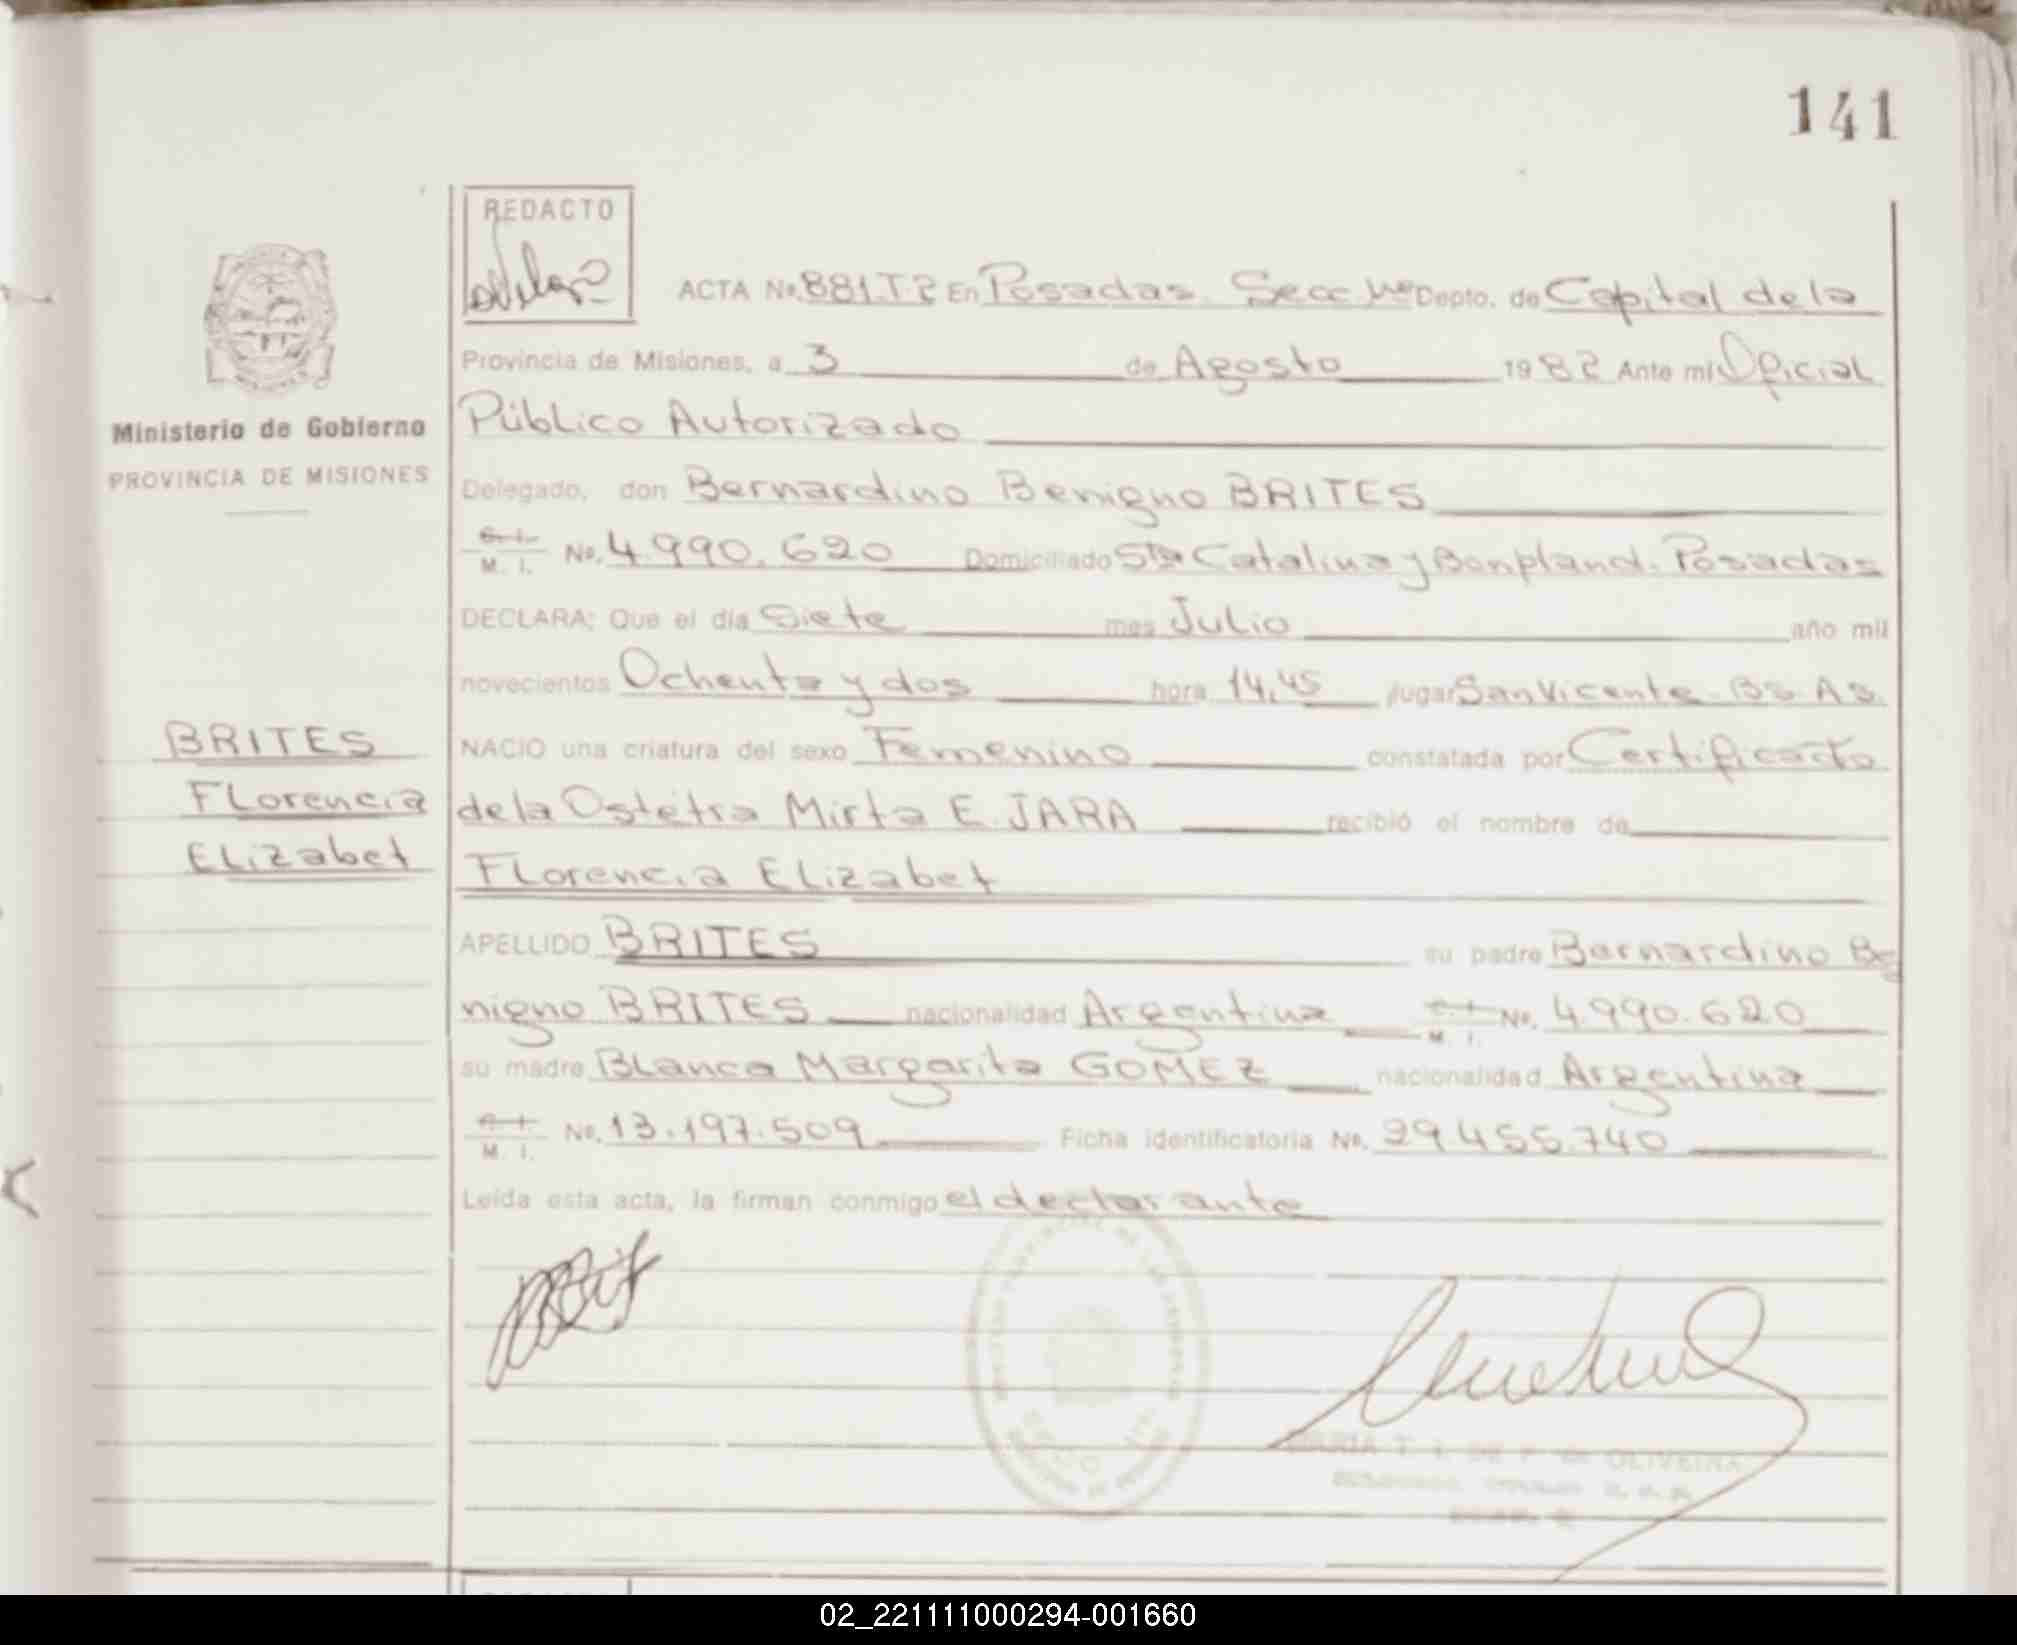 141
REDACTO
ACTA No. 881.T2 En Posadas. Secc Depto. de Capital de la
Provincia de Misiones, a 3 de Agosto 1982 Ante mi Oficial
Público Autorizado
Ministerio de Gobierno
PROVINCIA DE MISIONES
Delegado, don Bernardino Benigno BRITES
C. I.
M. I. No. 4.990.620 Domiciliado Sta Catalina y Bonpland. Posadas
DECLARA; Que el día Siete mes Julio año mil
novecientos Ochenta y dos hora 14,45 lugar San Vicente. Bs As.
BRITES
Florencia
Elizabet
NACIO una criatura del sexo Femenino constatada por Certificado
de la Ostétra Mirta E. JARA recibió el nombre de
Florencia Elizabet
APELLIDO BRITES su padre Bernardino Be
nigno BRITES nacionalidad Argentina C. I.
M. I. No. 4.990.620
su madre Blanca Margarita GOMEZ nacionalidad Argentina
C. I.
M. I. No. 13.197.509 Ficha identificatoria No. 29.455.740
Leída esta acta, la firman conmigo el declarante
MARIA T. I. DE F. de OLIVEIRA
02_221111000294-001660